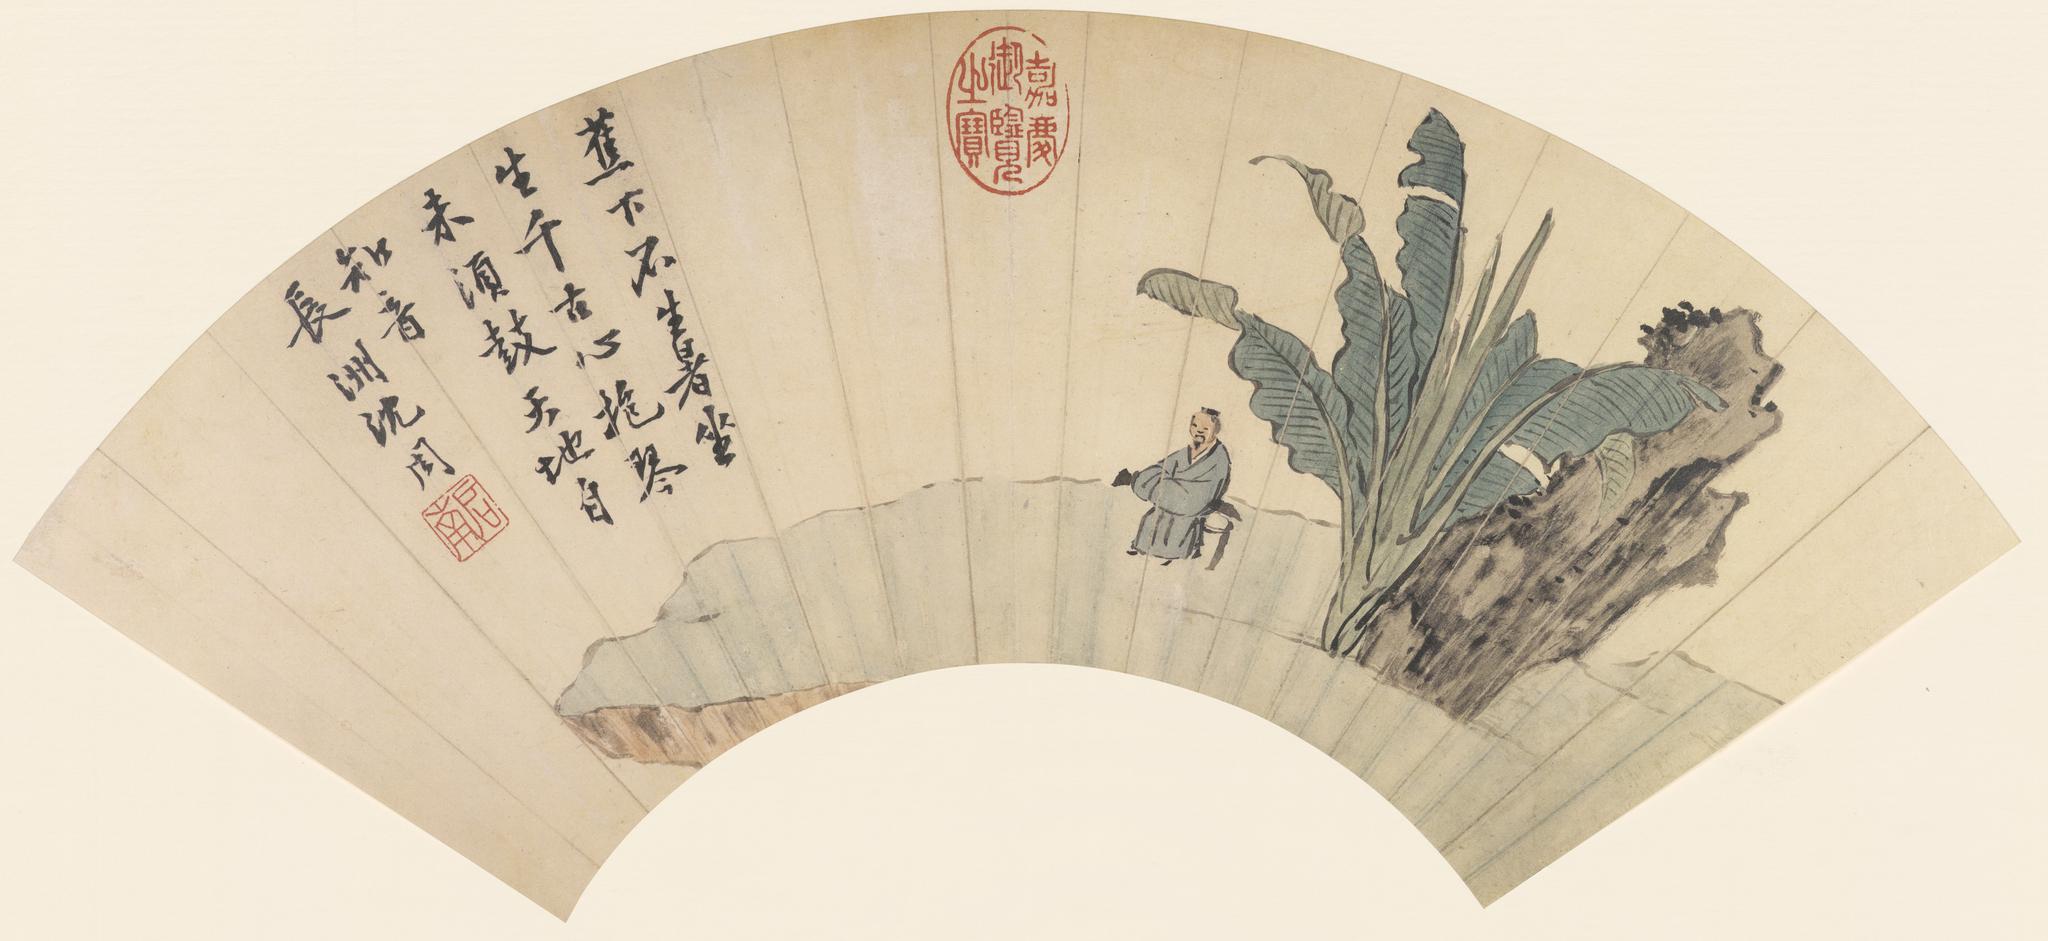 蕉下不生暑坐
生千古心抱琴
未須鼓天地自
知音
長洲沈周
啓南
嘉慶
御覽
之寶